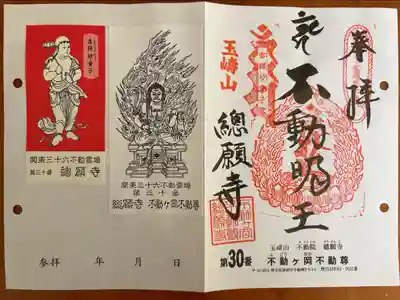 奉拝
不動明王
玉嶹山
總願寺
吉祥妙童子
玉嶹山 不動院 總願寺
第30番 不動ヶ岡不動尊
吉祥妙童子
関東三十六不動霊場
第三十番 總願寺
関東三十六不動霊場
第三十番
總願寺 不動ヶ岡不動尊
参拝 年 月 日